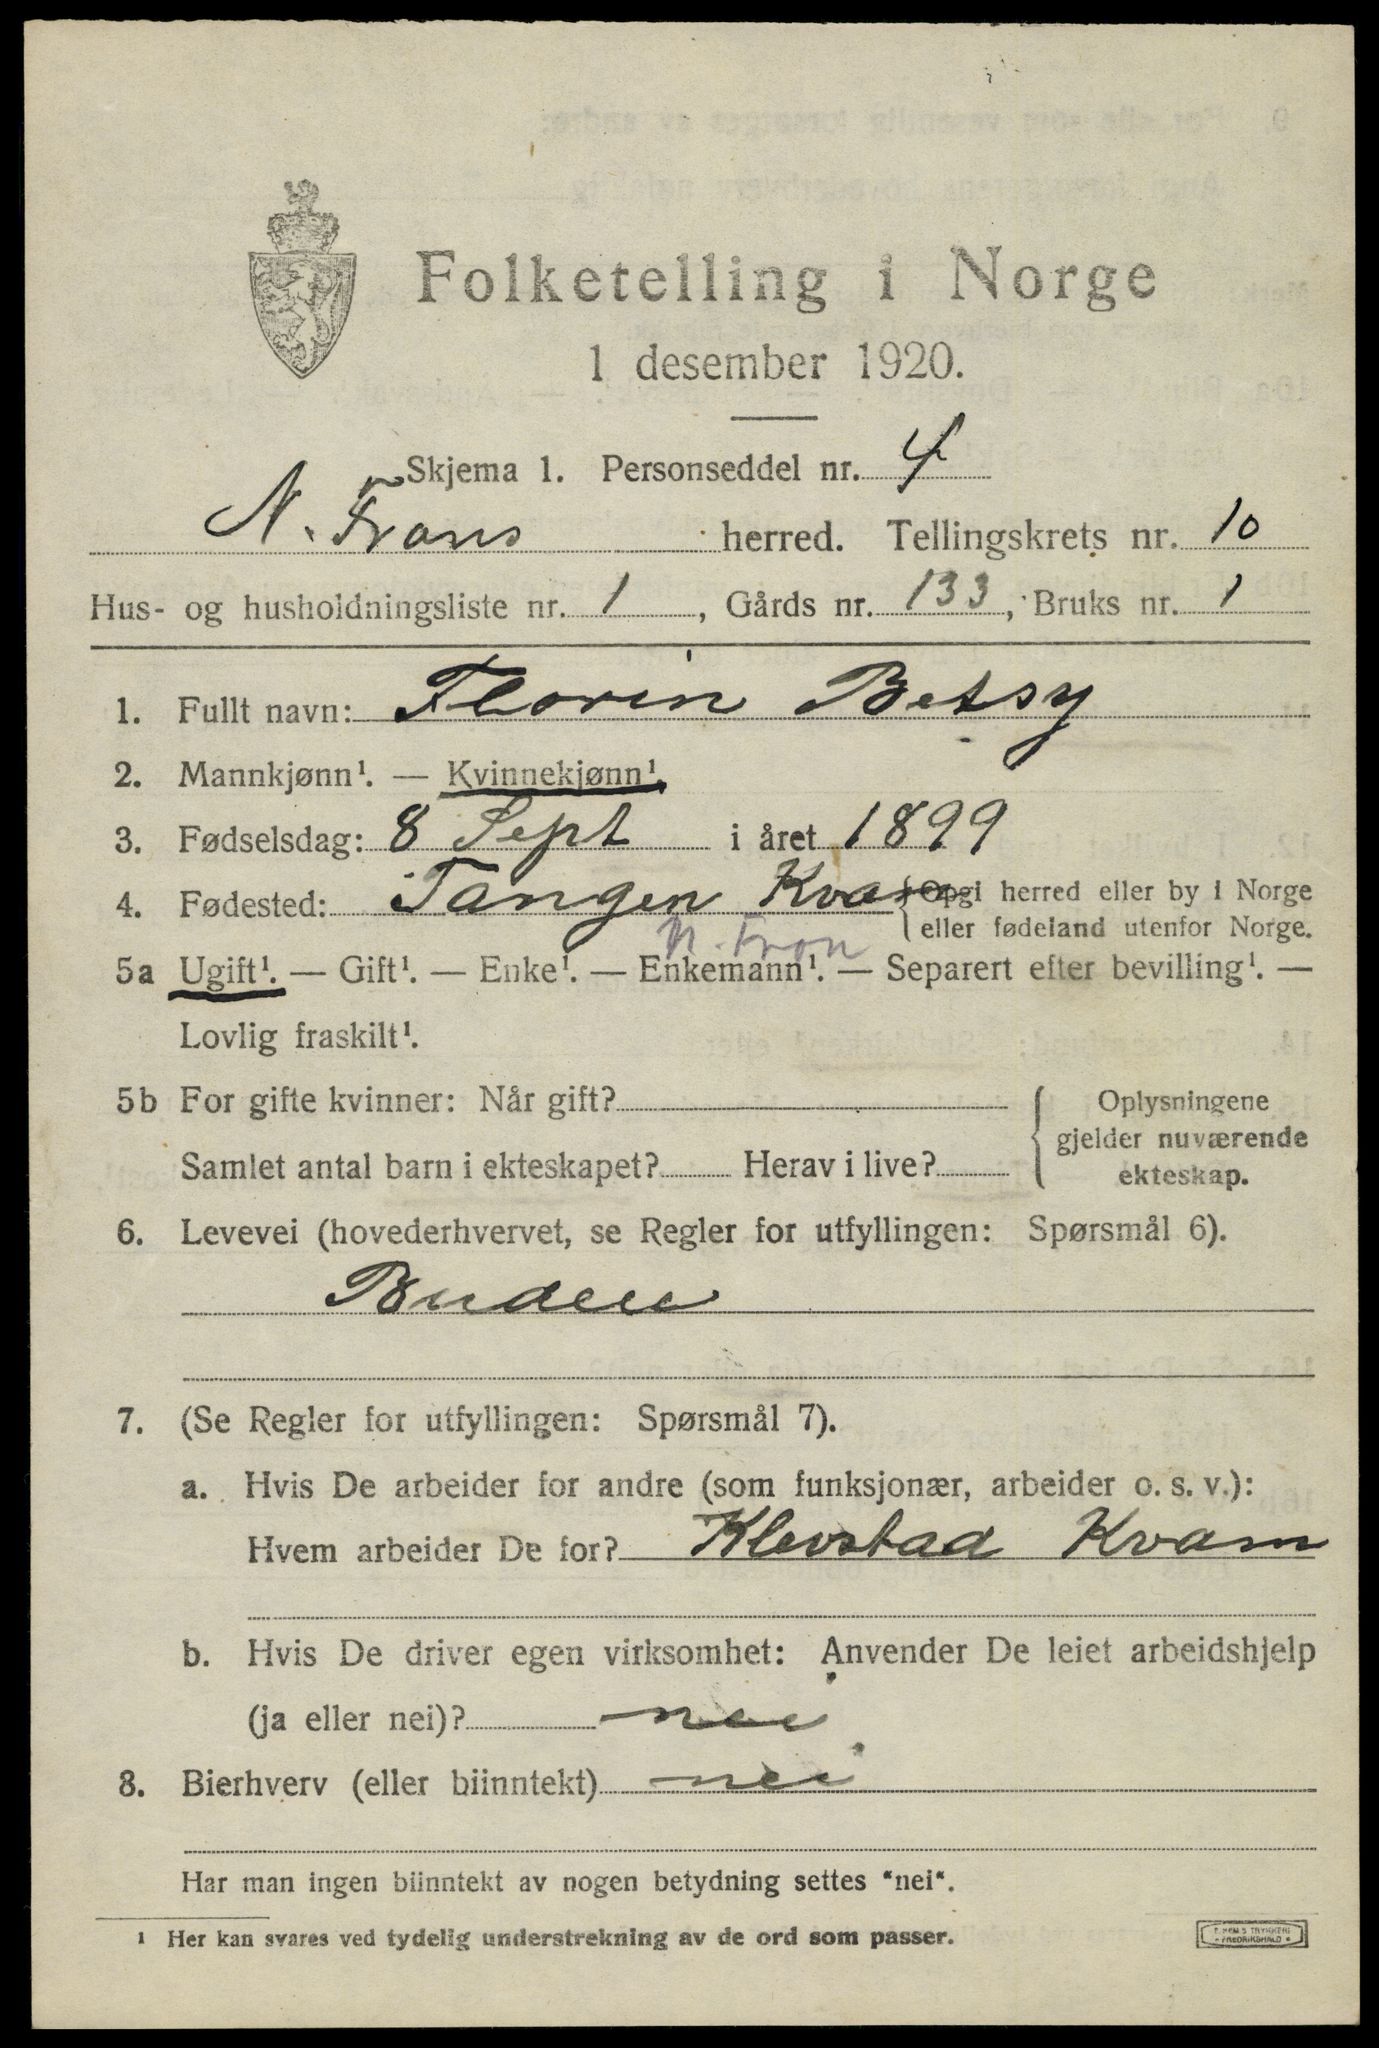 Folketelling i Norge
1 desember 1920.
Skjema 1. Personseddel nr. 4
N. Frons herred. Tellingskrets nr. 10
Hus- og husholdningsliste nr. 1, Gårds nr. 133, Bruks nr. 1
1. Fullt navn: Florin Betsy
2. Mannkjønn¹. — Kvinnekjønn¹.
3. Fødselsdag: 8 Sept i året 1899
4. Fødested: Tangen Kvam { Opgi herred eller by i Norge
eller fødeland utenfor Norge.
N. Fron
5a Ugift¹. — Gift¹. — Enke¹. — Enkemann¹. — Separert efter bevilling¹. —
Lovlig fraskilt¹.
5b For gifte kvinner: Når gift? { Oplysningene
gjelder nuværende
Samlet antal barn i ekteskapet? Herav i live? ekteskap.
6. Levevei (hovederhvervet, se Regler for utfyllingen: Spørsmål 6).
Budeie
7. (Se Regler for utfyllingen: Spørsmål 7).
a. Hvis De arbeider for andre (som funksjonær, arbeider o. s. v.):
Hvem arbeider De for? Klevstad Kvam
b. Hvis De driver egen virksomhet: Anvender De leiet arbeidshjelp
(ja eller nei)? nei
8. Bierhverv (eller biinntekt) nei
Har man ingen biinntekt av nogen betydning settes "nei".
¹ Her kan svares ved tydelig understrekning av de ord som passer.